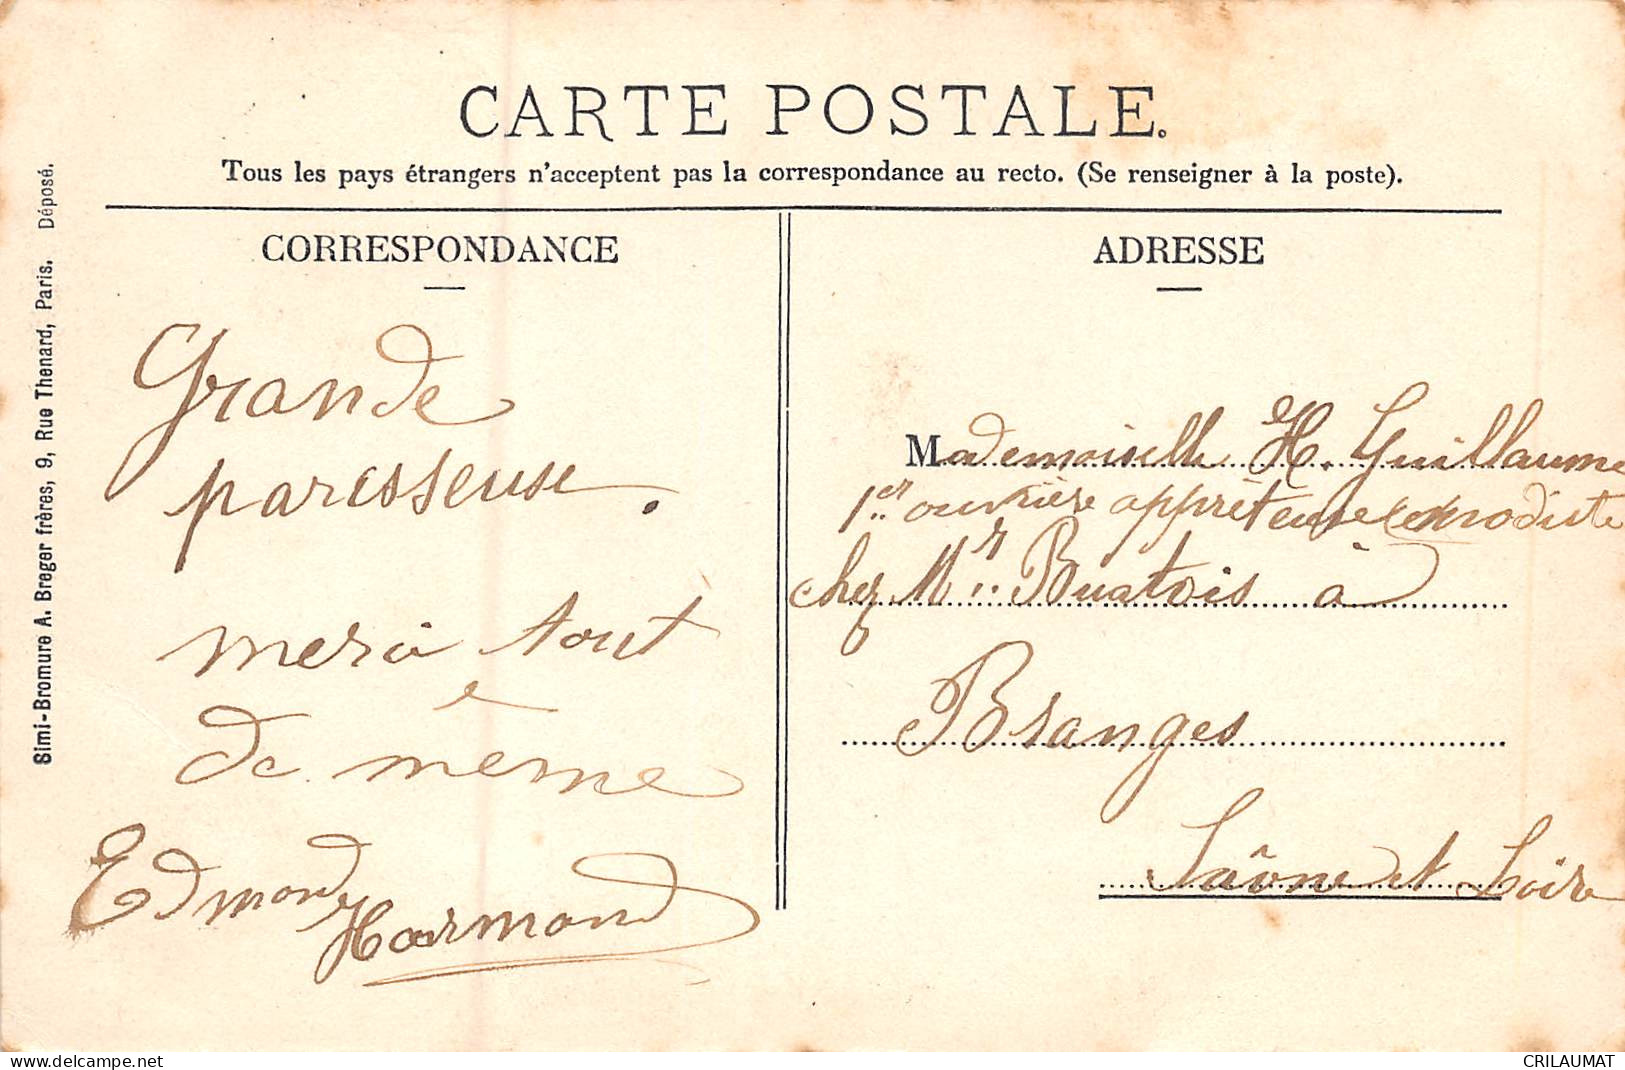 CARTE POSTALE.
Tous les pays étrangers n'acceptent pas la correspondance au recto. (Se renseigner à la poste).
Simi-Bromure A. Breger frères, 9, Rue Thenard, Paris. Déposé.
CORRESPONDANCE
Grande
paresseuse.
merci tout
de même
Edmond
Harmand
ADRESSE
Mademoiselle H. Guillaume
1er ouvrière apprêteuse modiste
chez Mr Buatois à
Branges
Saône et Loire
www.delcampe.net
CRILAUMAT